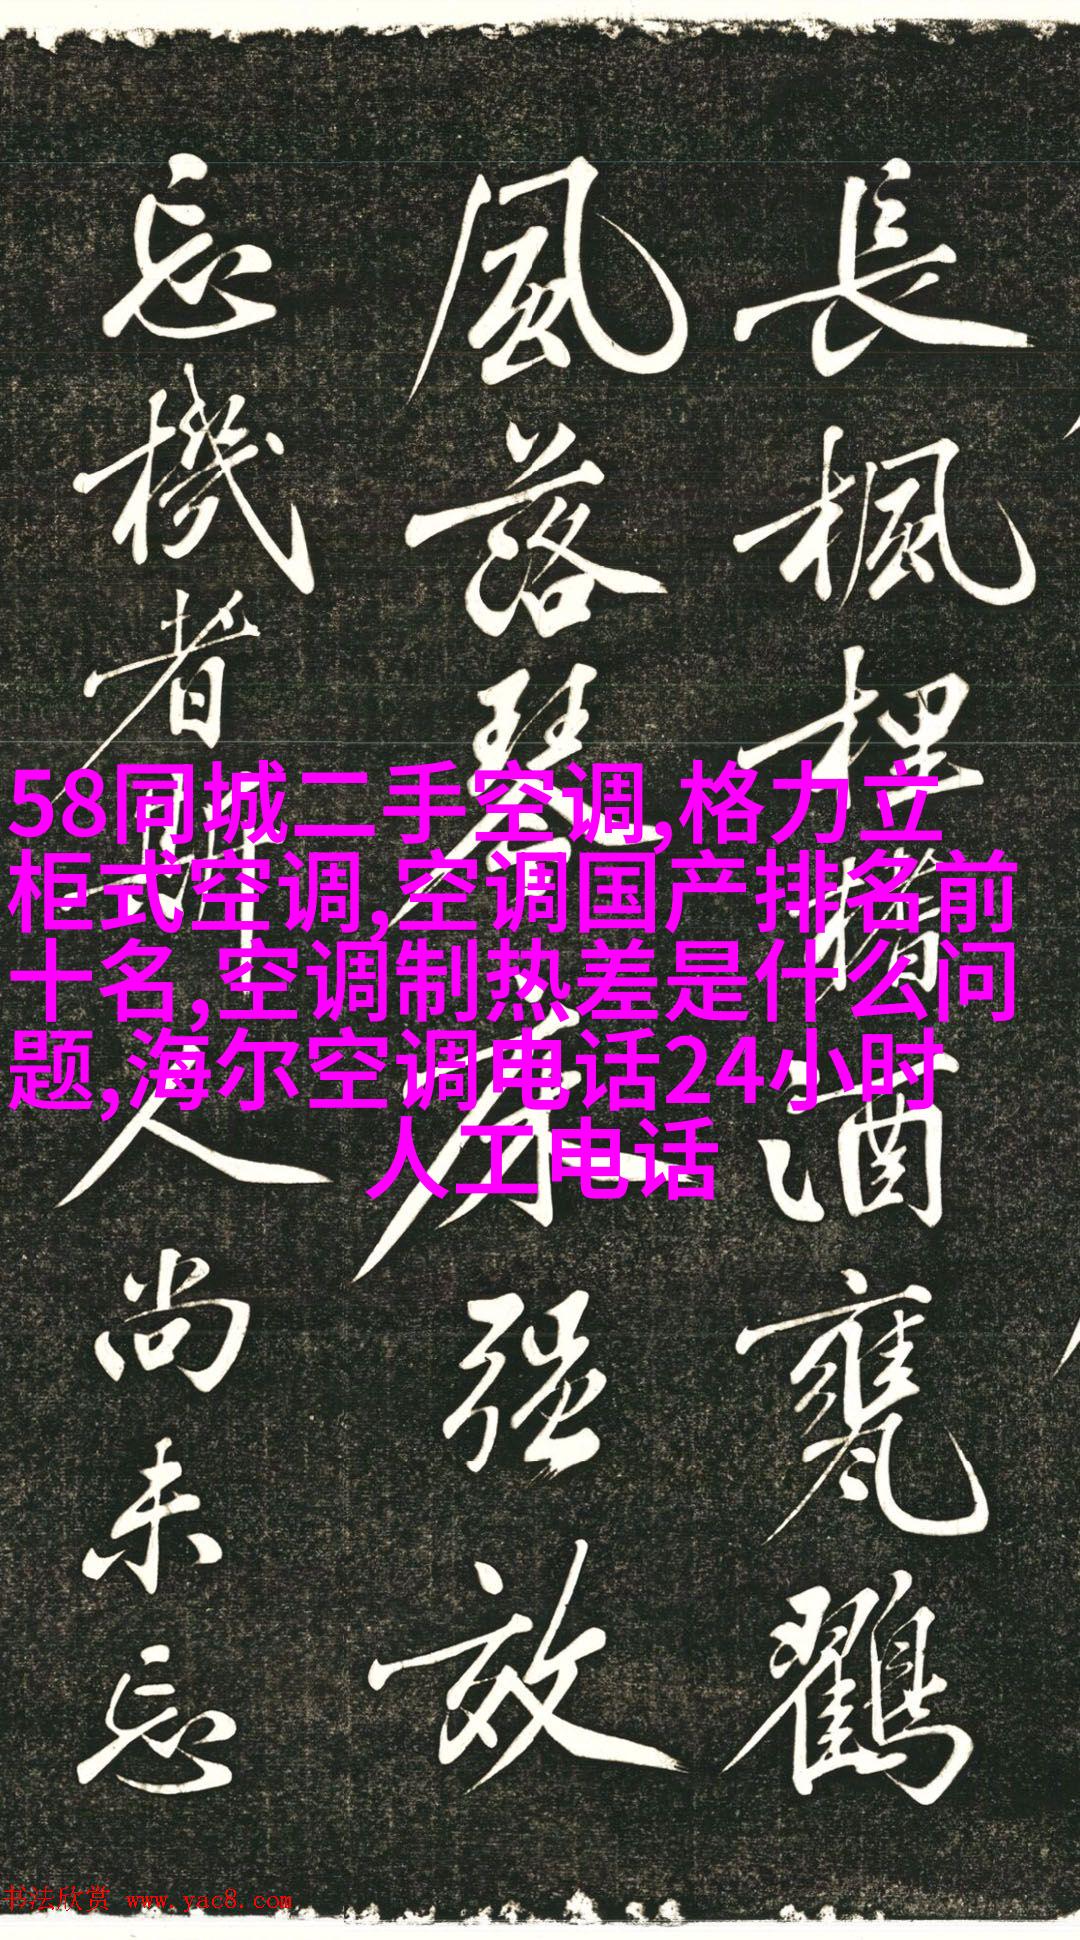 長楓酒甕
風落琴强
忘機者人尚未忘
58同城二手空调,格力立
柜式空调,空调国产排名前
十名,空调制热差是什么问
题,海尔空调电话24小时
人工电话
书法欣赏 www.yac8.com